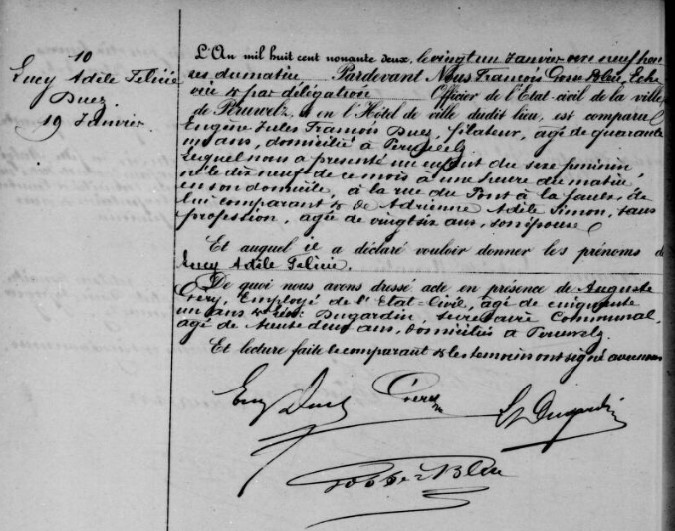 10
Lucy Adèle Félicie
Duez.
19 Janvier.
L'An mil huit cent nonante deux, le vingt un Janvier vers neuf heu
res du matin Pardevant Nous François Gosse-Blée, Eche
vin & par délégation Officier de l'Etat-civil de la ville
de Péruwelz, et en l'Hôtel de ville dudit lieu, est comparu
Eugène Jules François Duez, filateur, agé de quarante
un ans, domicilié à Peruwelz
Lequel nous a présenté un enfant du sexe féminin,
né le dix neuf de ce mois à une heure du matin
en son domicile, à la rue du Pont à la faulx, de
lui comparant & de Adrienne Adèle Simon, sans
profession, agée de vingt six ans, son épouse
Et auquel il a déclaré vouloir donner les prénoms de
Lucy Adèle Félicie.
De quoi nous avons dressé acte en présence de Auguste
Employé de l'Etat-Civil, agé de cinquante
un ans & Dugardin, Secrétaire Communal,
agé de trente deux ans, domiciliés à Peruwelz.
Et lecture faite le comparant & les temoins ont signé avec nous
Eug Duez
Dugardin
Gosse-Blée